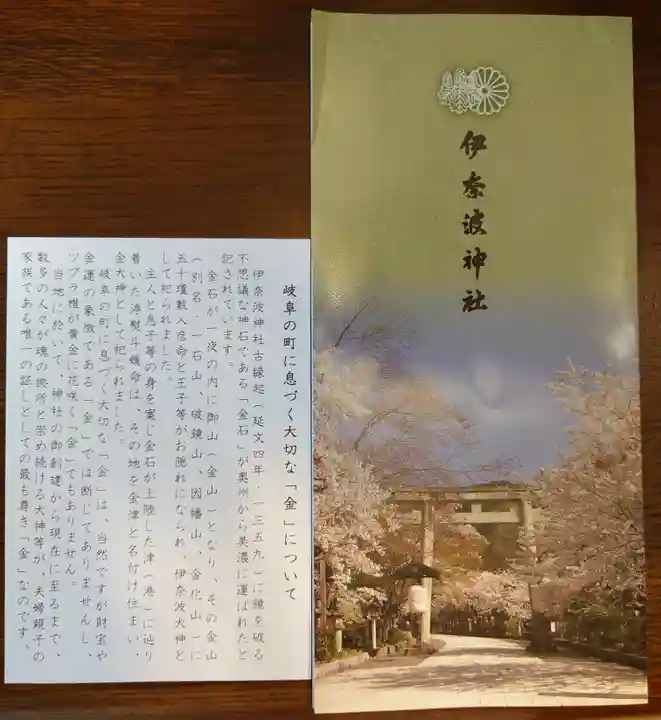 岐阜の町に息づく大切な「金」について
伊奈波神社古縁起(延文四年・一三五九)に鏡を破る
不思議な神石である「金石」が奥州から美濃に運ばれたと
記されています。
金石が一夜の内に御山(金山)となり、その金山
(別名 一石山、破鏡山、因幡山、金花山)に
五十瓊敷入彦命と王子等がお隠れになられ、伊奈波大神と
して祀られました。
主人と息子等の身を案じ金石が上陸した津(港)に辿り
着いた渟熨斗媛命は、その地を金津と名付け住まい、
金大神として祀られました。
岐阜の町に息づく大切な「金」は、当然ですが財宝や
金運の象徴である「金」では断じてありませんし、
ツブラ椎が黄金に花咲く「金」でもありません。
当地に於いて、神社の御創建から現在に至るまで、
数多の人々が魂の拠所と崇め続ける大神等が、夫婦親子の
家族である唯一の証しとしての最も尊き「金」なのです。
伊奈波神社